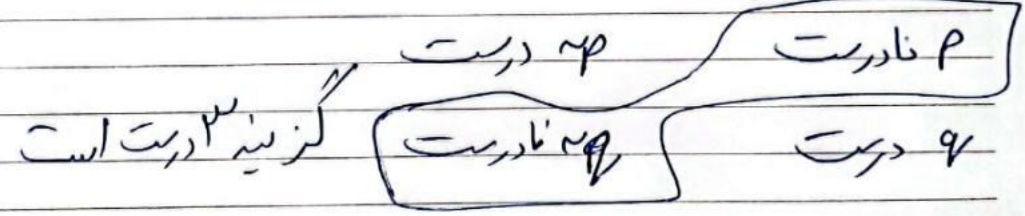 p نادرست ~p درست
q درست ~q نادرست گزینه ۳ درست است